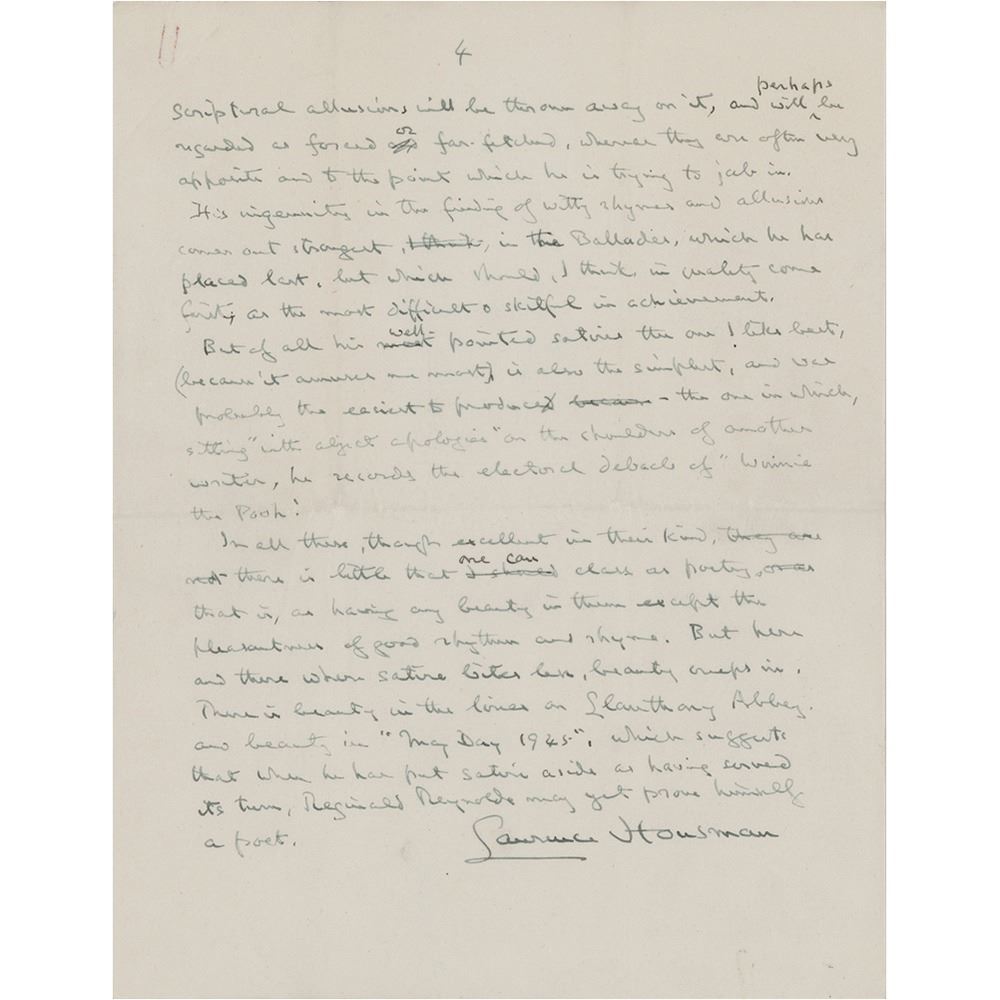 4
perhaps
Scriptural allusions will be thrown away on it, and will be
or
regarded as forced far-fetched, whereas they are often very
apposite and to the point which he is trying to jab in.
His ingenuity in the finding of witty rhymes and allusions
comes out strongest, I think, in the Ballades, which he has
placed last, but which should, I think, in quality come
first, as the most difficult & skilful in achievement.
well-
But of all his most pointed satires the one I like best,
(because it amuses me most) is also the simplest, and was
probably the easiest to produce - the one in which,
sitting "with abject apologies" on the shoulders of another
writer, he records the electoral debacle of "Winnie
the Pooh!
In all these, though excellent in their kind, they are
one can
not there is little that I should class as poetry,
that is, as having any beauty in them except the
pleasantness of good rhythm and rhyme. But here
and there where satire bites less, beauty creeps in.
There is beauty in the lines on Llanthony Abbey.
and beauty in "May Day 1945", which suggests
that when he has put satire aside as having served
its turn, Reginald Reynolds may yet prove himself
a poet.
Laurence Housman